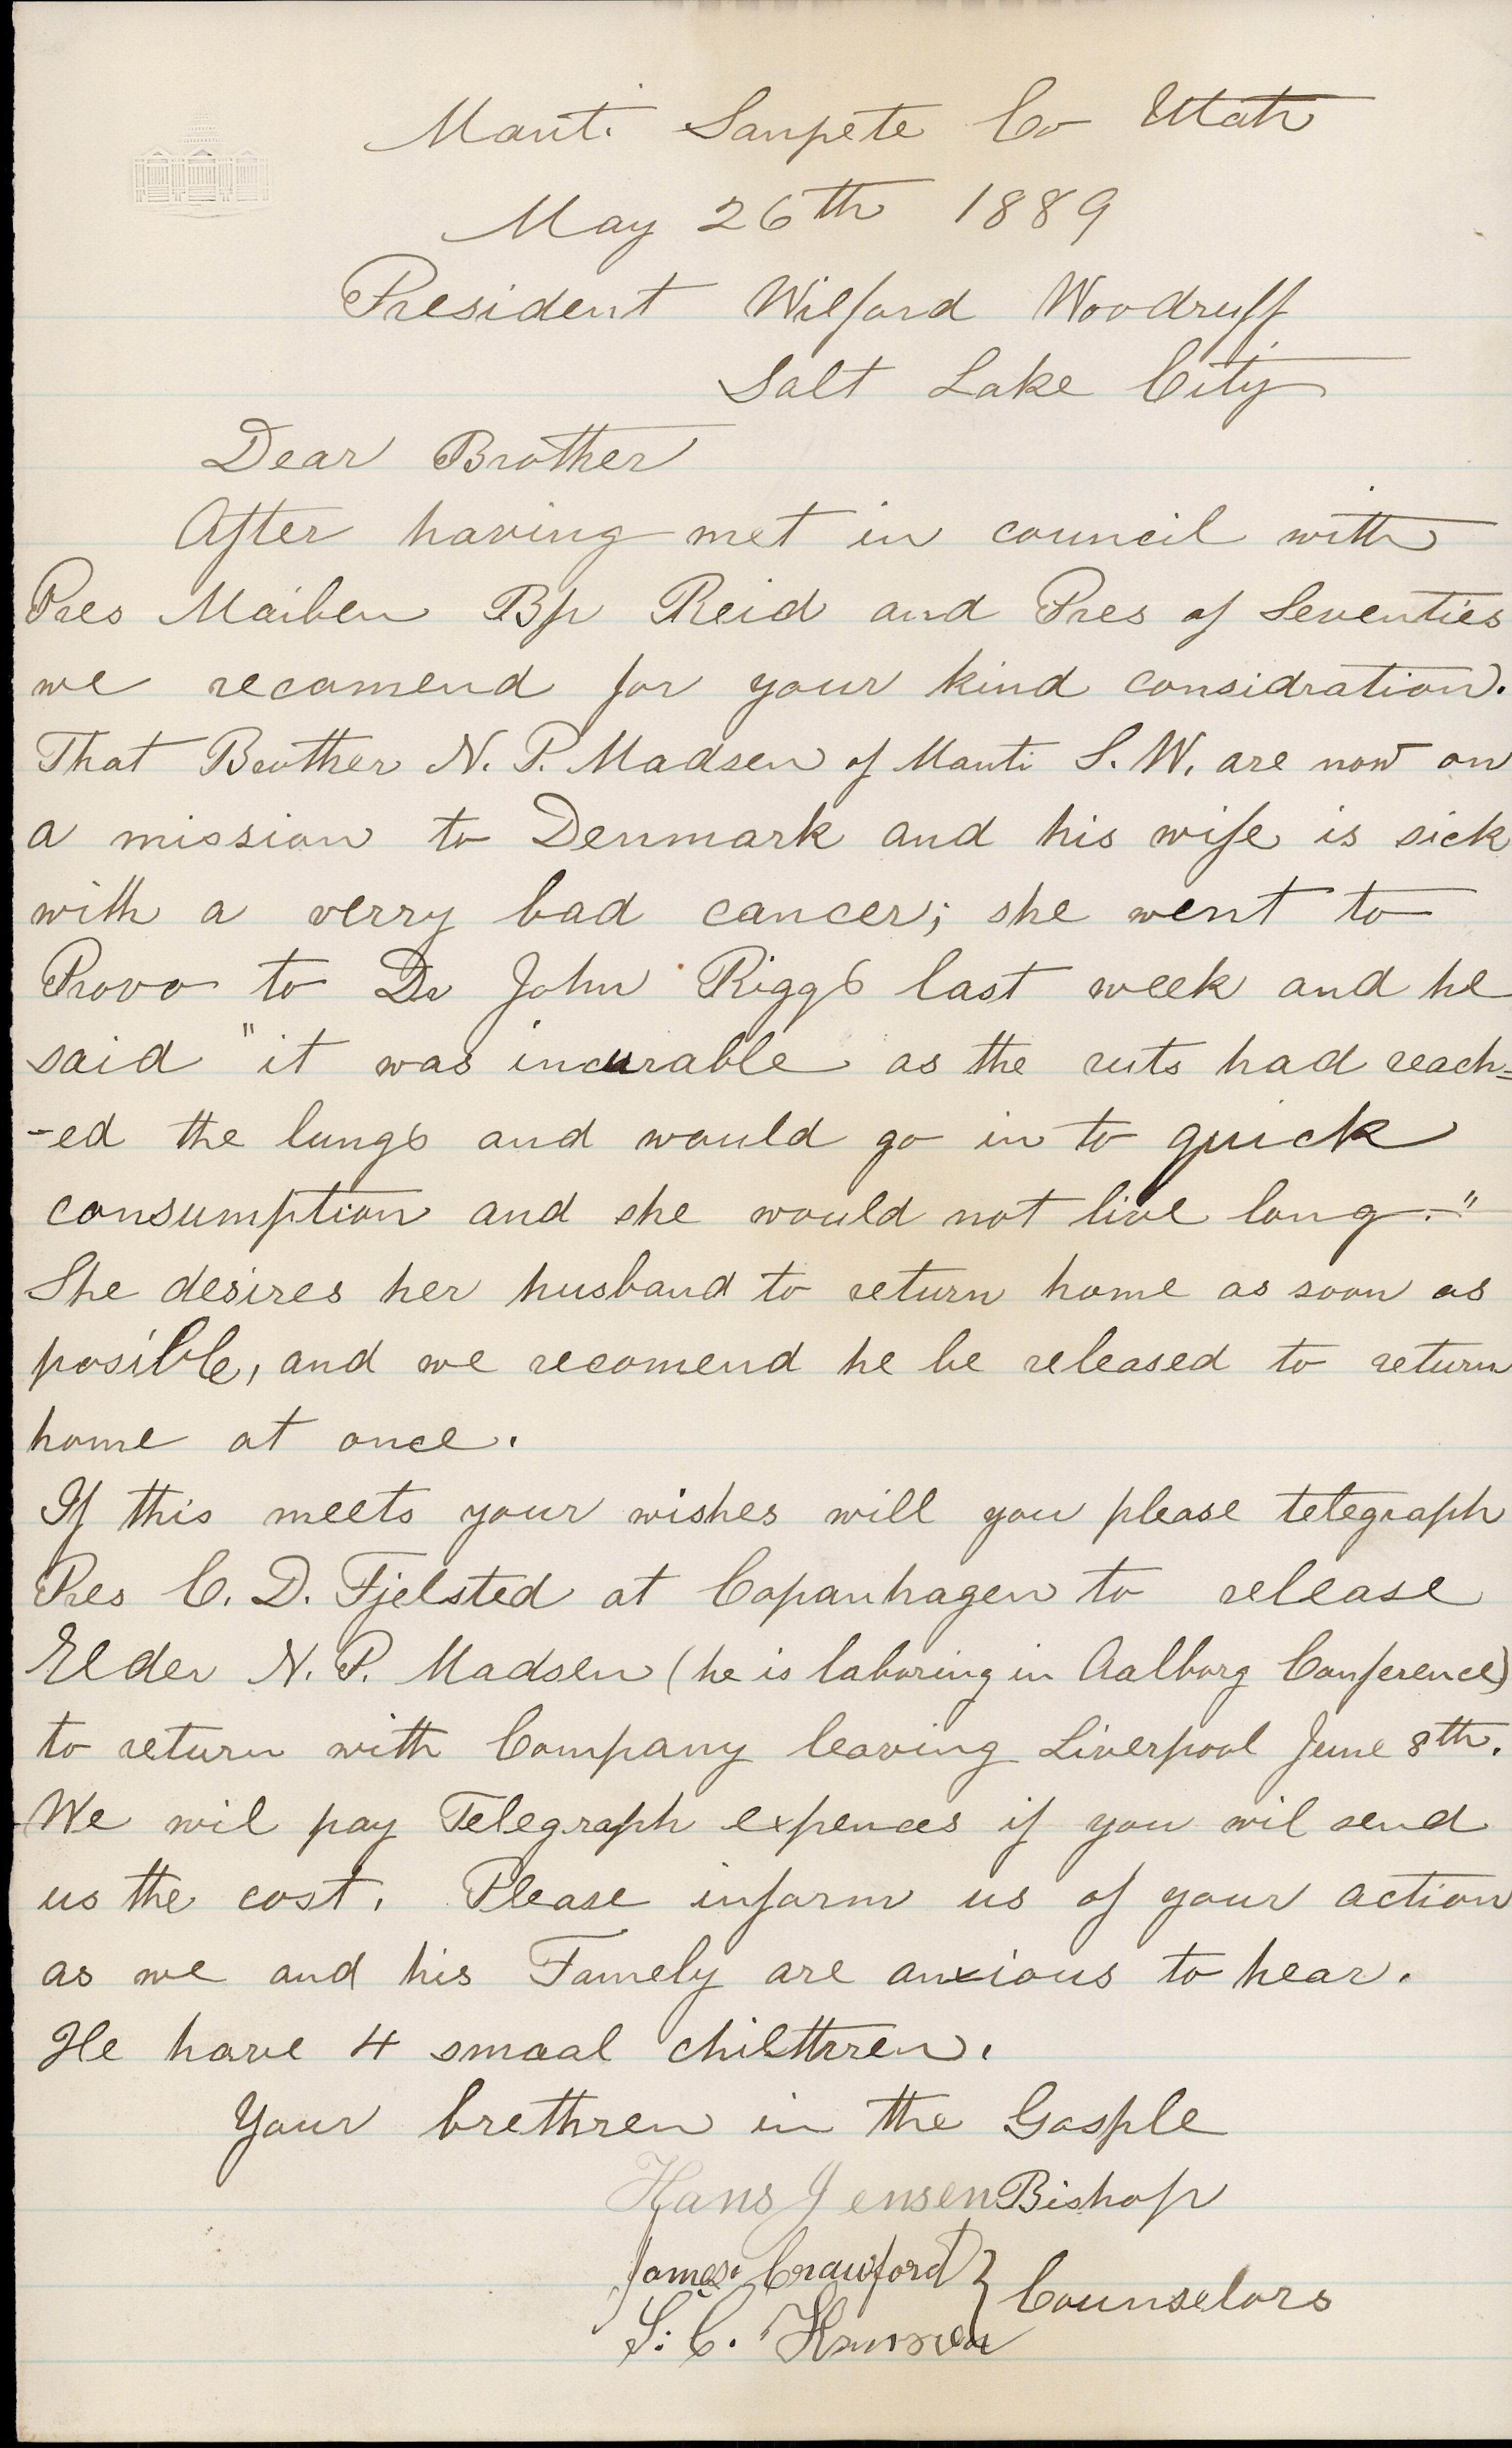 Manti Sanpete Co Utah
May 26th 1889
President Wilford Woodruff
Salt Lake City
Dear Brother
After having met in council with
Pres Maiben Bp Reid and Pres of Seventies
we recomend for your kind considration.
That Brother N. P. Madsen of Manti S. W. are now on
a mission to Denmark and his wife is sick
with a verry bad cancer; she went to
Provo to Dr John Riggs last week and he
said "it was incurable as the ruts had reach=
-ed the lungs and would go in to quick
consumption and she would not live long."
She desires her husband to return home as soon as
posible, and we recomend he be released to return
home at once.
If this meets your wishes will you please telegraph
Pres C. D. Fjelsted at Copanhagen to release
Elder N. P. Madsen (he is laboring in Aalborg Conference)
to return with Company leaving Liverpool June 8th.
We wil pay Telegraph expences if you wil send
us the cost. Please inform us of your action
as we and his Famely are anxious to hear.
He have 4 smaal chilthren.
Your brethren in the Gosple
Hans Jensen Bishop
James Crawford } Counselors
S. C.